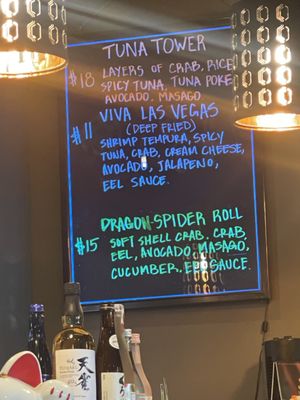 TUNA TOWER
$18 LAYERS OF CRAB, RICE
SPICY TUNA, TUNA POKE
AVOCADO, MASAGO
VIVA LAS VEGAS
$11 (DEEP FRIED)
SHRIMP TEMPURA, SPICY
TUNA, CRAB, CREAM CHEESE,
AVOCADO, JALAPENO,
EEL SAUCE.
DRAGON-SPIDER ROLL
$15 SOFT SHELL CRAB, CRAB
EEL, AVOCADO, MASAGO,
CUCUMBER, EEL SAUCE.
天雀